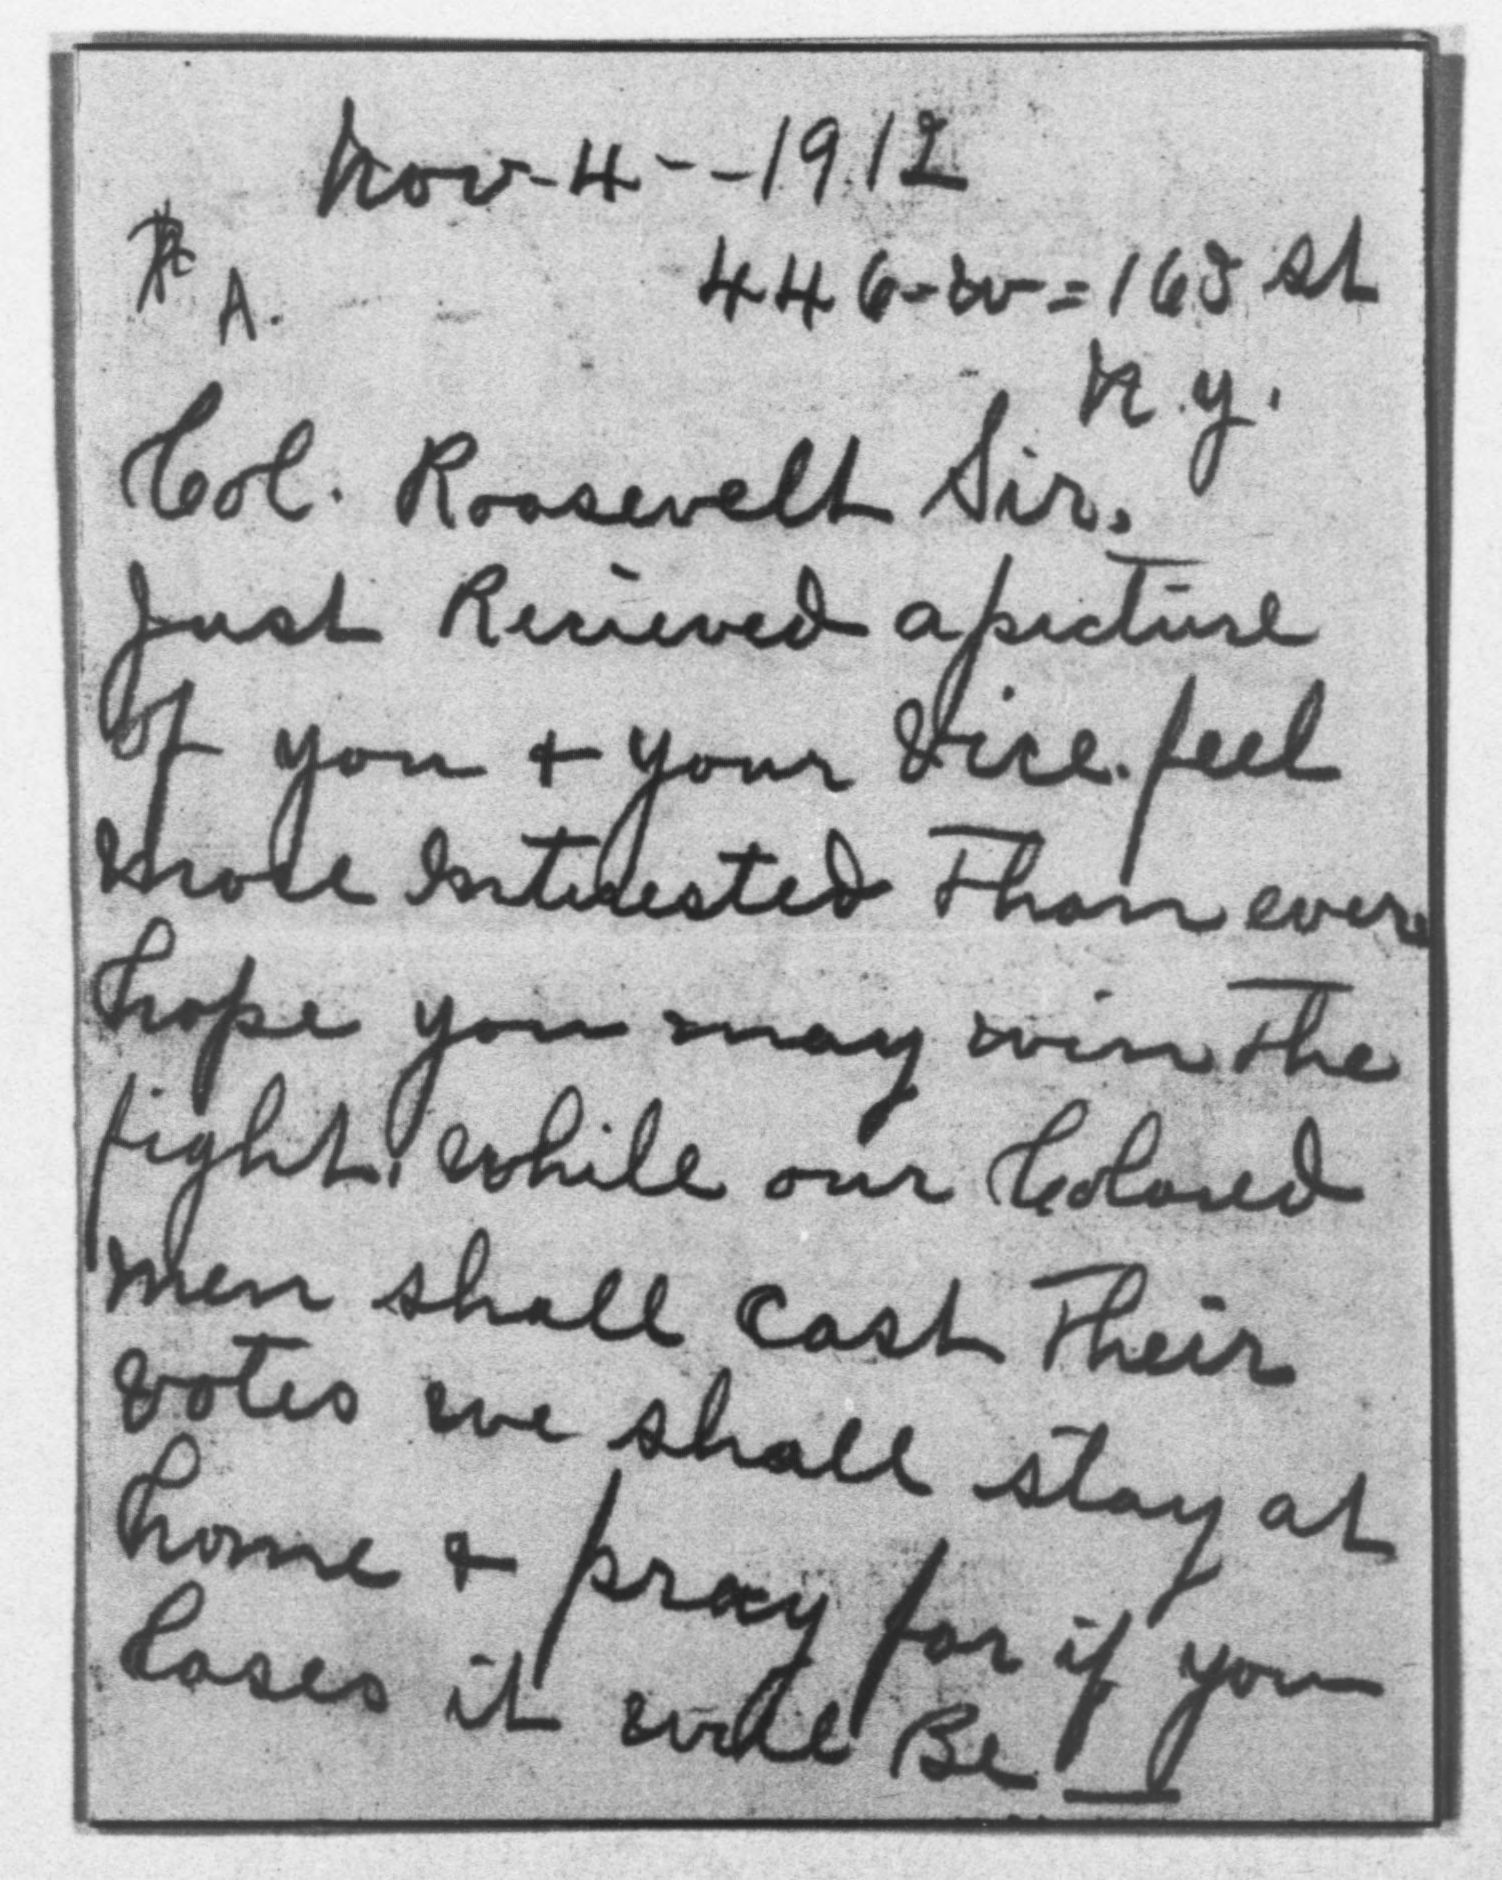 Nov-4--1912
A.
446-W=163 st
N.Y.
Col. Roosevelt Sir.
Just Recieved a picture
of you + your Vice. feel
more Interested Than ever.
hope you may win The
fight. While our Colored
men shall Cast Their
votes we shall stay at
home + pray for if you
loses it will Be —